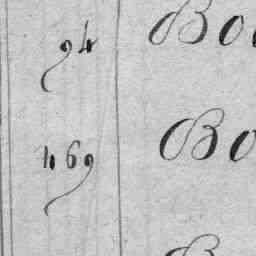 94 Bo
469 Bo